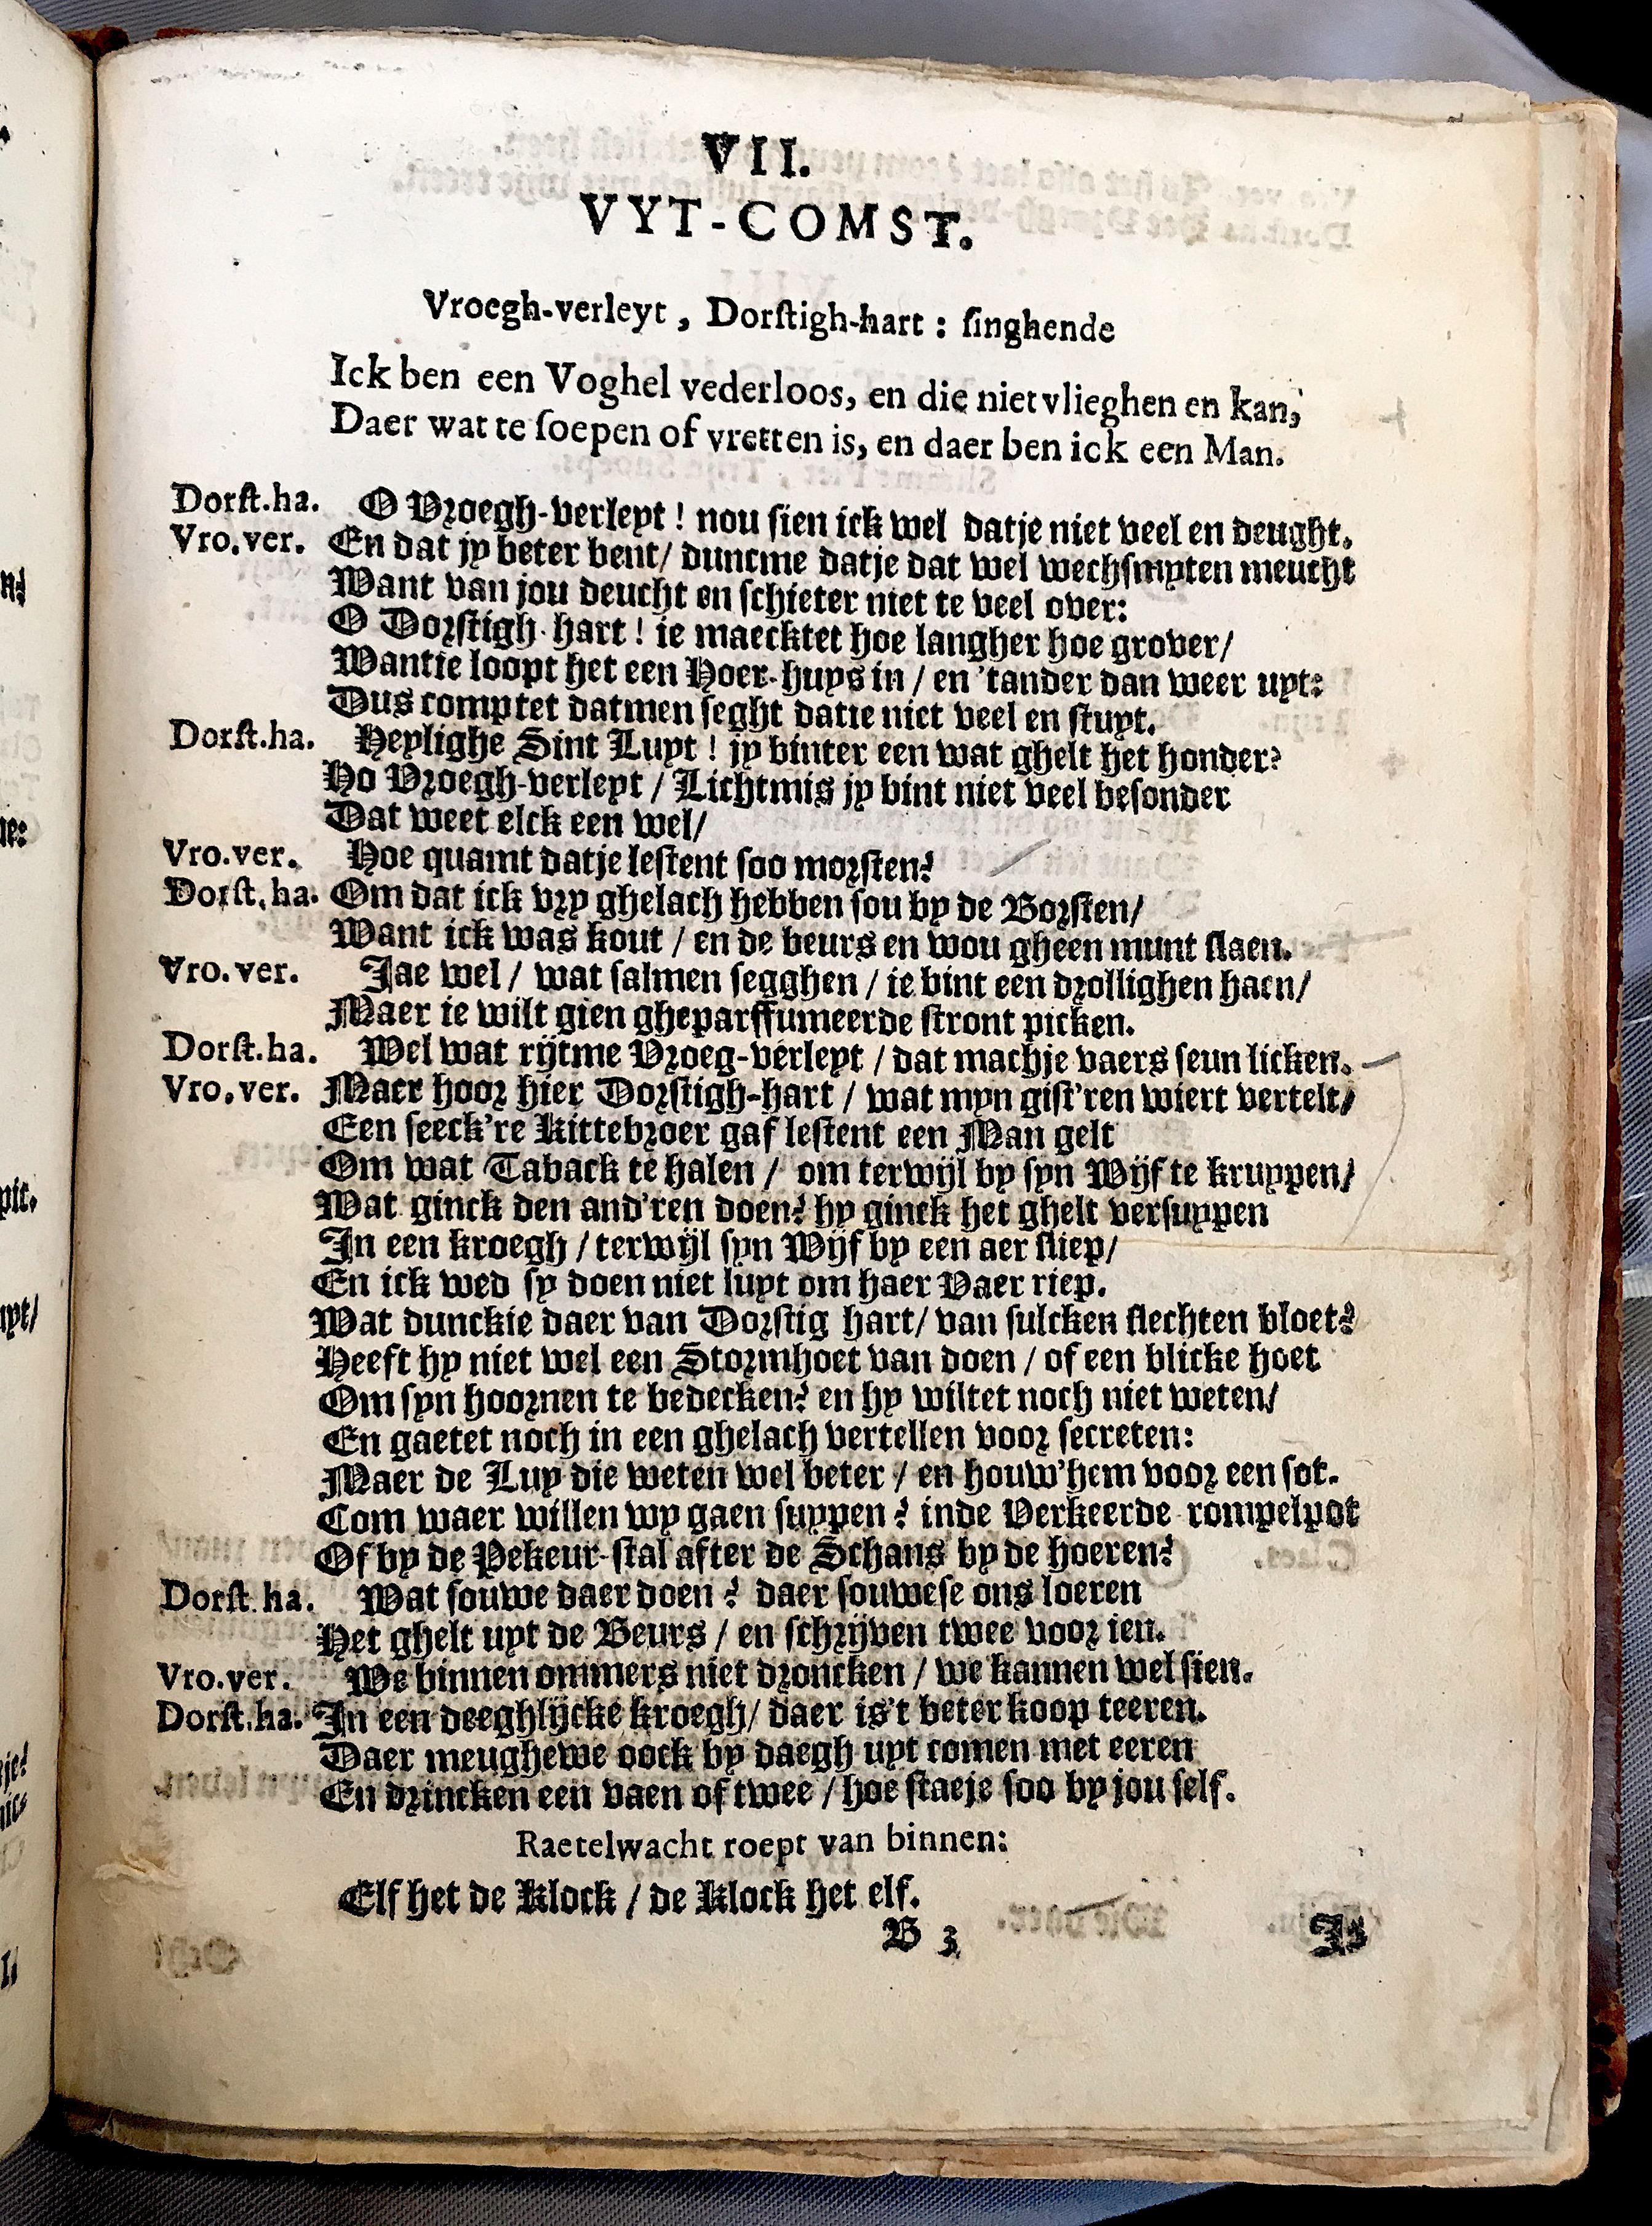 VII.
VYT-COMST.
Vroegh-verleyt, Dorstigh-hart: singhende
Ick ben een Voghel vederloos, en die niet vlieghen en kan,
Daer wat te soepen of vretten is, en daer ben ick een Man.
Dorst.ha. O Vroegh-verleyt! nou sien ick wel datje niet veel en deught.
Vro.ver. En dat jy beter bent/ duncme datje dat wel wechsmyten meucht
Want van jou deucht en schieter niet te veel over:
O Dorstigh-hart! ie maecktet hoe langher hoe grover/
Wantie loopt het een Hoer-huys in/ en 'tander dan weer uyt:
Dus comptet datmen seght datie niet veel en stuyt.
Dorst.ha. Heylighe Sint Luyt! jy binter een wat ghelt het honder?
Ho Vroegh-verleyt/ Lichtmis jy bint niet veel besonder
Dat weet elck een wel/
Vro.ver. Hoe quamt datje lestent soo morsten?
Dorst.ha. Om dat ick vry ghelach hebben sou by de Borsten/
Want ick was kout/ en de beurs en wou gheen munt slaen.
Vro.ver. Jae wel/ wat salmen segghen/ ie bint een drollighen haen/
Maer ie wilt gien gheparffumeerde stront picken.
Dorst.ha. Wel wat rijtme Vroeg-verleyt/ dat machje vaers seun licken.
Vro.ver. Maer hoor hier Dorstigh-hart/ wat myn gist'ren wiert vertelt/
Een seeck're Kittebroer gaf lestent een Man gelt
Om wat Taback te halen/ om terwijl by syn Wijf te kruypen/
Wat ginck den and'ren doen? hy ginck het ghelt versuypen
In een kroegh/ terwijl syn Wijf by een aer sliep/
En ick wed sy doen niet luyt om haer Vaer riep.
Wat dunckie daer van Dorstig hart/ van sulcken slechten bloet?
Heeft hy niet wel een Stormhoet van doen/ of een blicke hoet
Om syn hoornen te bedecken? en hy wiltet noch niet weten/
En gaetet noch in een ghelach vertellen voor secreten:
Maer de Luy die weten wel beter/ en houw'hem voor een sot.
Com waer willen wy gaen suypen? inde Verkeerde rompelpot
Of by de Pekeur-stal after de Schans by de hoeren?
Dorst.ha. Wat souwe daer doen? daer souwese ons loeren
Het ghelt uyt de Beurs/ en schrijven twee voor ien.
Vro.ver. We binnen ommers niet droncken/ we kannen wel sien.
Dorst.ha. In een deeghlijcke kroegh/ daer is't beter koop teeren.
Daer meughewe oock by daegh uyt comen met eeren
En drincken een vaen of twee/ hoe staeje soo by jou self.
Raetelwacht roept van binnen:
Elf het de Klock/ de Klock het elf.
B 3
Is